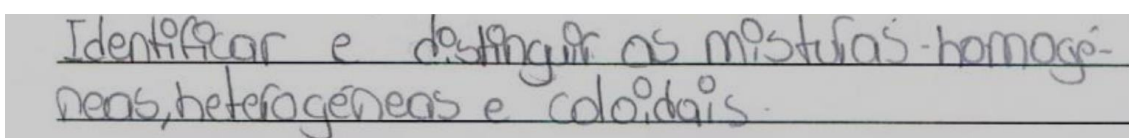 Identificar e distinguir as misturas-homogé-
neas, heterogéneas e coloidais.